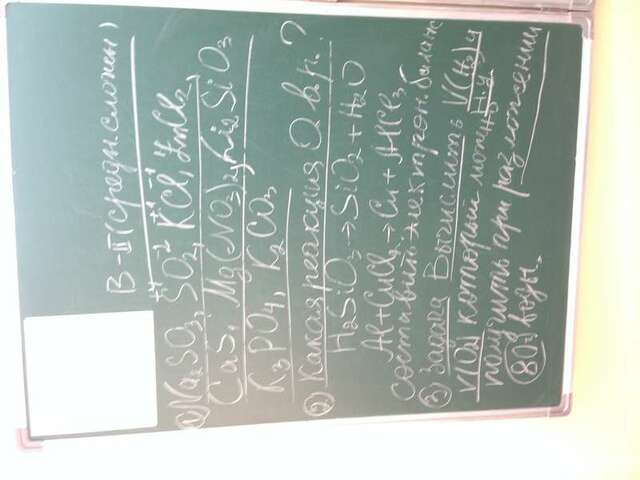 В-II (средн. сложн)
① Na₂SO₃, S⁺⁴O₂⁻², K⁺¹Cl⁻¹, ZnCl₂,
CaS, Mg(NO₃)₂, Li₂SiO₃
K₃PO₄, K₂CO₃
② Какая реакция О.в.р.?
H₂SiO₃→SiO₂+H₂O
Al+CuCl₂→Cu+AlCl₃
составить электрон. баланс
③ Задача Вычислить V(H₂) и
V(O₂) который можно н.у
получить при разложении
80г воды.